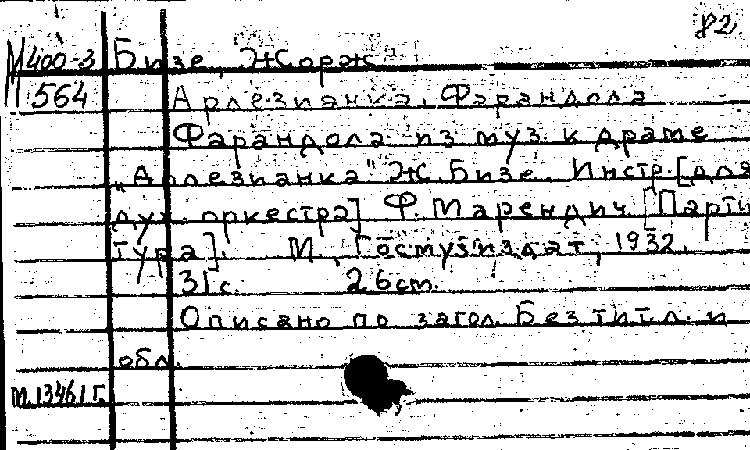 82
М400-3 Бизе, Жорж
564 Арлезианка. Фарандола
Фарандола из муз. к драме
„Арлезианка" Ж. Бизе. Инстр. [для
дух. оркестра] Ф. Марендич. [Парти
тура]. М., Гостузиздат, 1932.
31 с. 26 cm.
Описано по загол. Без тит. л. и
обл.
т.1346.1 г.